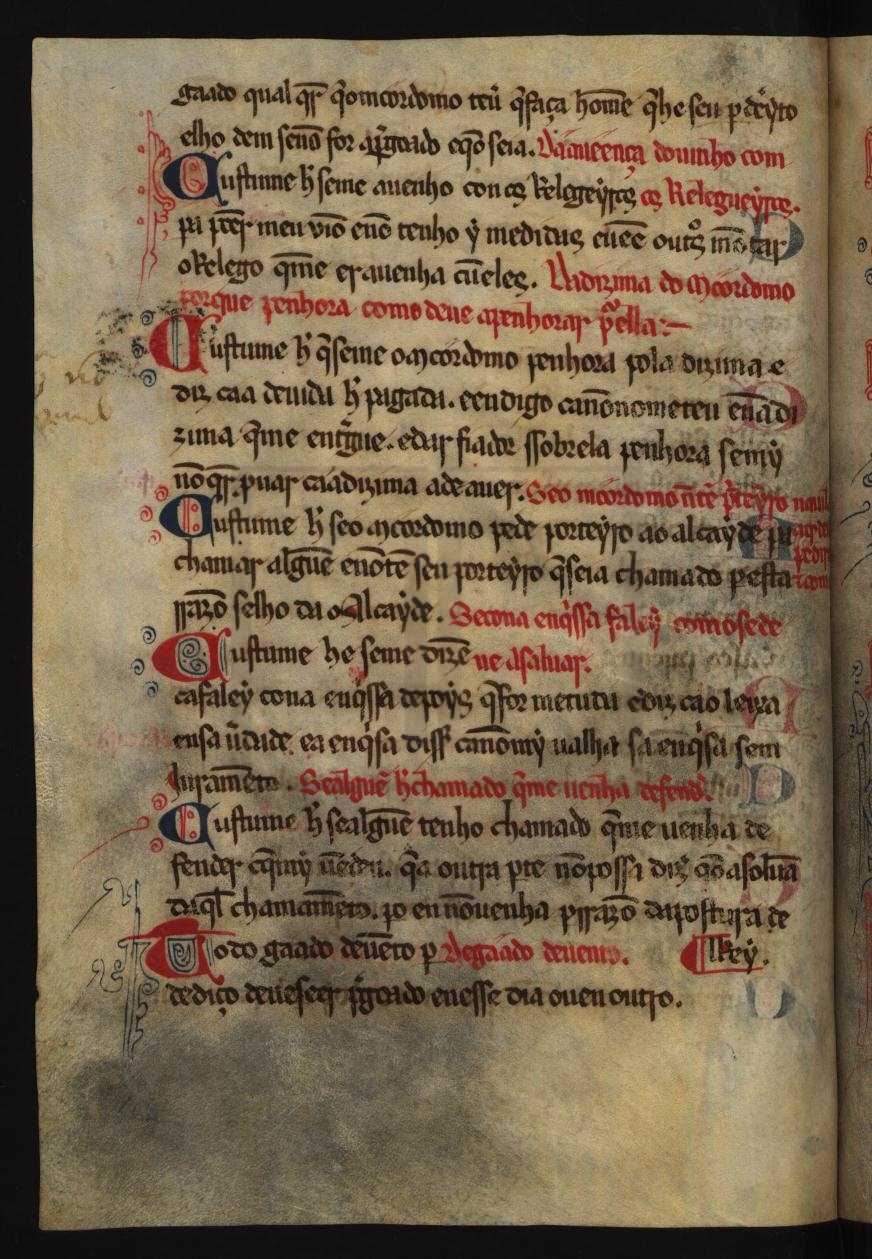 gaado qual qr̃ q̃ omcordomo teũ q̃ faça home q̃ he seu p deȳto
elho dem senõ for ap̃goado eqõ seia. Da aueença douinho com
Custume h̃ seme auenho con os Relegeyros os Relegueyros.
pa põer meu vio enõ tenho y medidas
oRelego q̃me er auenha cũ eles. Da dizima do Mcordomo
porque penhora como deue apenhorar p̃ ella :~
Custume h̃ q̃ seme o Mcordomo penhora pola dizima e
diz caa deuida h̃ pagada. eeu digo ca nõ nometeu enadi
zima q̃me entr̃gue. e dar fiador ssobrela penhora se my
nõ qr̃ p̱uar caadizima a de auer. Seo mcordomo nõ tẽ p̃teyro
Custume h̃ seo Mcordomo pede porteyro ao alcayde pa
chamar alguẽ enõ tẽ seu porteyro q̃ seia chamado p esta
rrazõ selho da o Alcayde. Se cona enq̃ssa faley como se de
Custume he se me dizẽ ue asaluar.
ca faley cona enq̃ssa depoys q̃ for metuda e diz ca o leixa
ensa ũdade. ea enq̃sa diss̃ ca nõ my ualha sa enq̃sa sem
Juramẽto. Sealguẽ h̃ chamado q̃me uenha defend̃.
Custume h̃ se alguẽ tenho chamado q̃me uenha de
fender cq̃ my uẽdeu. q̃ a outra pte nõ possa diz̃ q̃ õ asoluã
daq̃l chamamẽto. po en nõ uenha p rrazõ da postura de
Todo gaado deuẽto p De gaado deuento. ElRey.
dediço deue seer p̃goado en esse dia ou en outro.